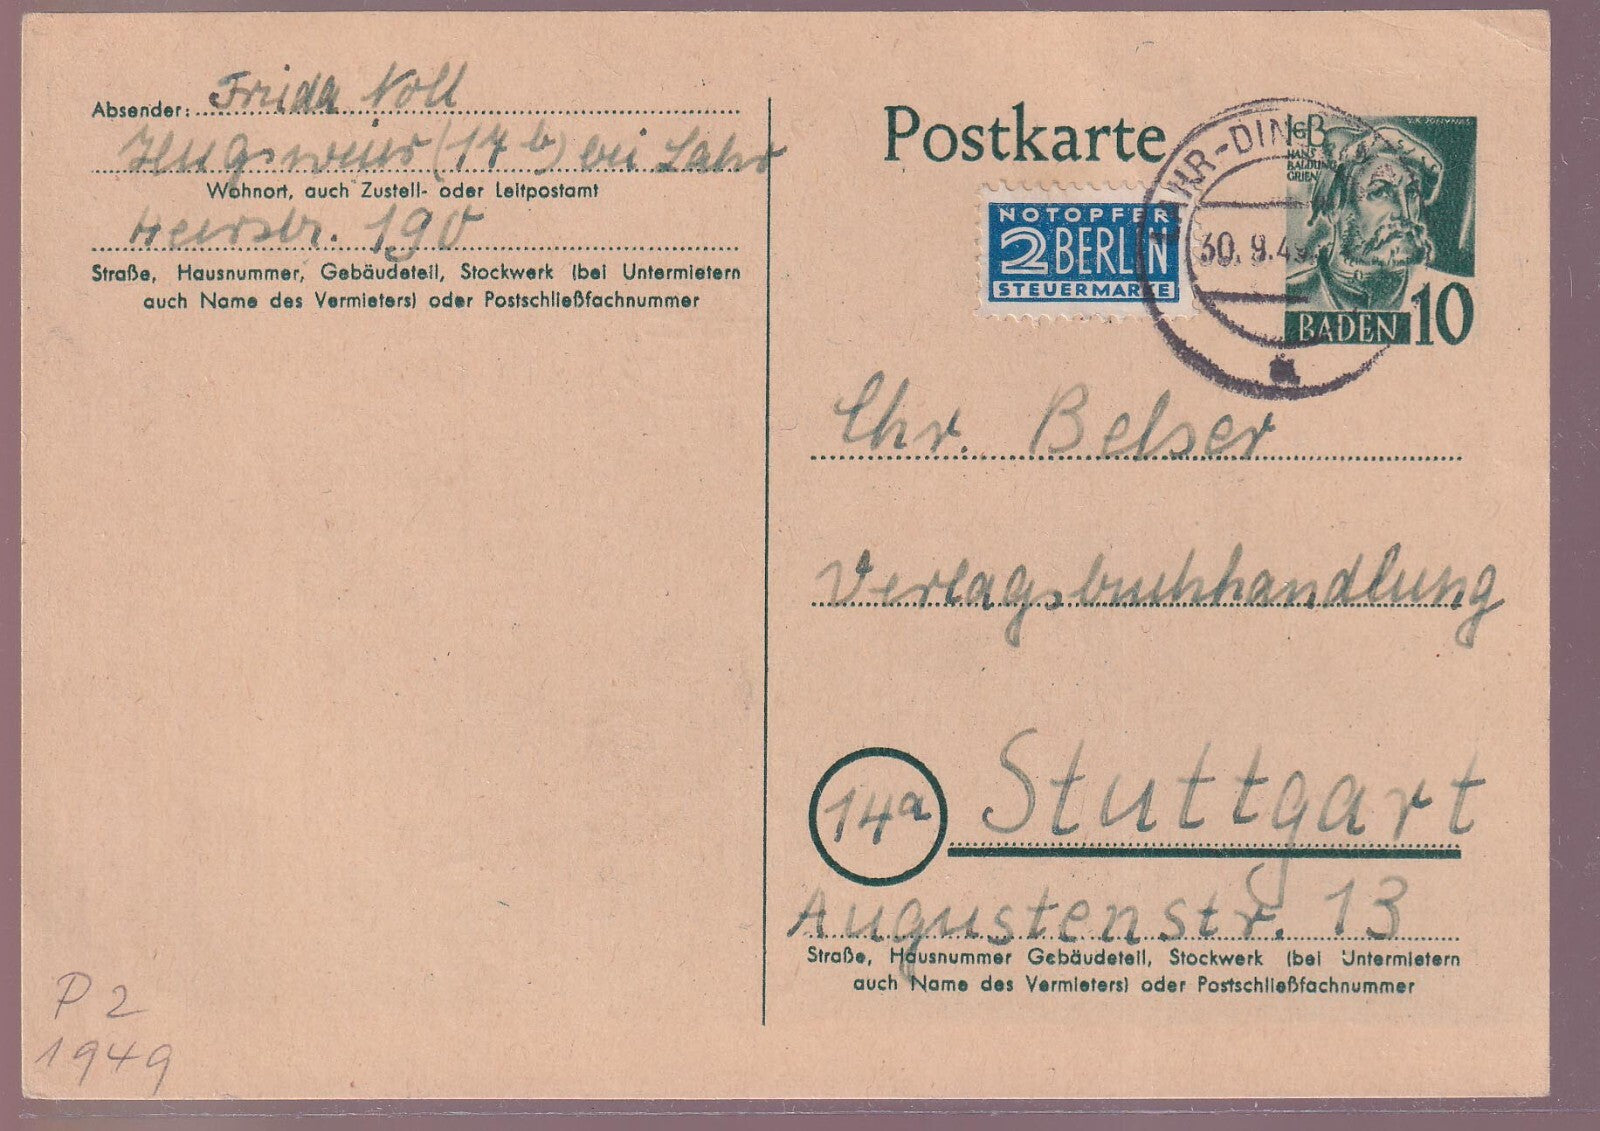 Absender: Frieda Noll
Hugsweier (17b) bei Lahr
Wohnort, auch Zustell- oder Leitpostamt
Heerstr. 190
Straße, Hausnummer, Gebäudeteil, Stockwerk (bei Untermietern
auch Name des Vermieters) oder Postschließfachnummer
Postkarte
NOTOPFER
2 BERLIN
STEUERMARKE
LAHR-DING
30.9.49
a
HGB
HANS
BALDUNG
GRIEN
BADEN 10
Chr. Belser
Verlagsbuchhandlung
14a Stuttgart
Augustenstr. 13
Straße, Hausnummer Gebäudeteil, Stockwerk (bei Untermietern
auch Name des Vermieters) oder Postschließfachnummer
P 2
1949